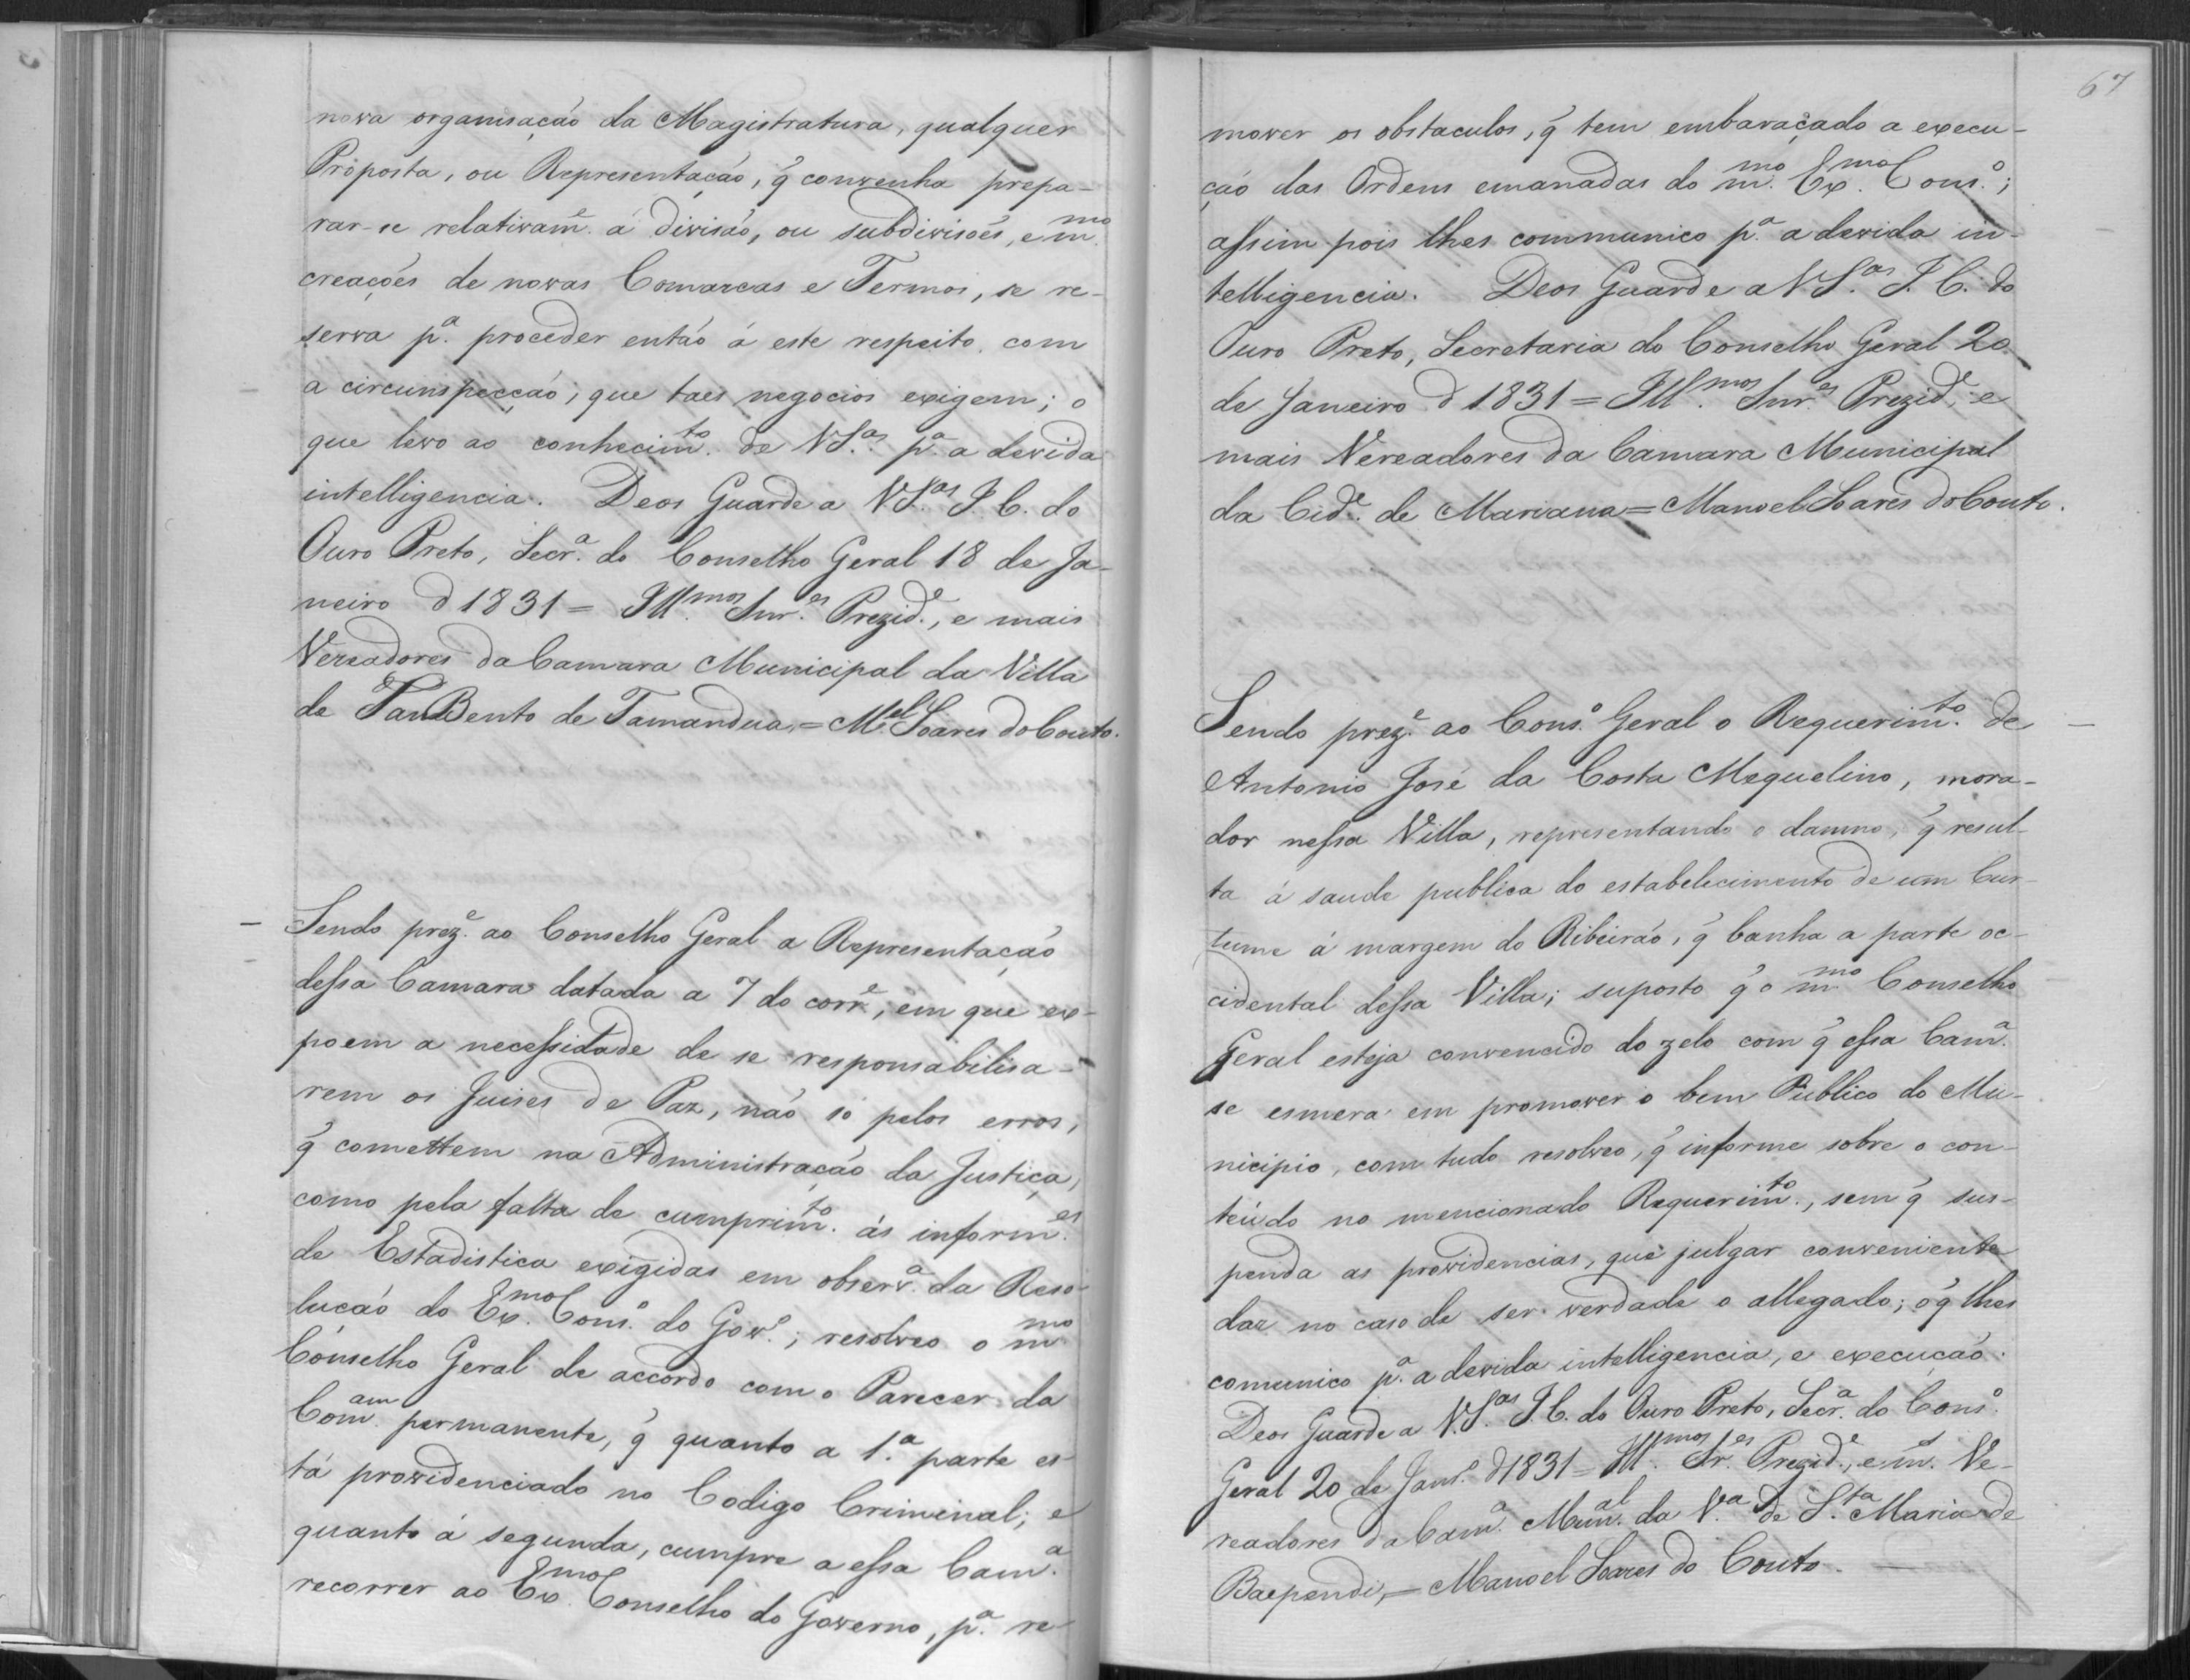 nova organisação da Magistratura, qualquer
Proposta, ou Representação, q̃ convenha prepa-
rar-se relativam.e á divisão, ou subdivisões, e m.mo
creações de novas Comarcas e Termos, se re-
serva p.a proceder então á este respeito, com
a circunspecção, que taes negocios exigem; o
que levo ao conhecim.to de VS.as p.a a devida
intelligencia. Deos Guarde a VS.as I. C. do
Ouro Preto, Secr.a do Conselho Geral 18 de Ja-
neiro d 1831 = Ill.mos Snr.es Prezid.e, e mais
Vereadores da Camara Municipal da Villa
de San Bento de Tamandua, = M.el Soares do Couto.
Sendo prez.e ao Conselho Geral a Representação
dessa Camara datada a 7 do corr.e, em que ex-
poem a necessidade de se responsabilisa-
rem os Juises de Paz, não só pelos erros,
q̃ comettem na Administração da Justiça,
como pela falta de cumprim.to ás inform.es
de Estadistica exigidas em observ.a da Reso-
lução do Ex.mo Cons.o do Gov.o; resolveo o m.mo
Conselho Geral de accordo com o Parecer da
Com.am permanente, q̃ quanto a 1.a parte es-
tá providenciado no Codigo Criminal; e
quanto á segunda, cumpre a essa Cam.a
recorrer ao Ex.mo Conselho do Governo, p.a re-
67
mover os obstaculos, q̃ tem embaraçado a execu-
ção das Ordens emanadas do m.mo Ex.mo Cons.o;
assim pois lhes communico p.a a devida in-
telligencia. Deos Guarde a VS.as I. C. do
Ouro Preto, Secretaria do Conselho Geral 20
de Janeiro d 1831 = Ill.mos Snr.es Prezid.e, e
mais Vereadores da Camara Municipal
da Cid.e de Mariana = Manoel Soares do Couto.
Sendo prez.e ao Cons.o Geral o Requerim.to de
Antonio José da Costa Mequelino, mora-
dor nessa Villa, representando o damno, q̃ resul-
ta á saude publica do estabelecimento de um Cur-
tume á margem do Ribeirão, q̃ banha a parte oc-
cidental dessa Villa; suposto q̃ o m.mo Conselho
Geral esteja convencido do zelo com q̃ essa Cam.a
se esmera em promover o bem Publico do Mu-
nicipio, com tudo resolveo, q̃ informe sobre o con-
teúdo no mencionado Requerim.to, sem q̃ sus-
penda as providencias, que julgar conveniente
dar no caso de ser verdade o allegado; o q̃ lhes
comunico p.a a devida intelligencia, e execução.
Deos Guarde a V.S.as I. C. do Ouro Preto, Secr.a do Cons.o
Geral 20 de Jan.o d 1831 = Ill.mos Sr.es Prezid.e, e m.s Ve-
readores da Cam.a Mun.al da V.a de S.ta Maria de
Baependi, = Manoel Soares do Couto. —